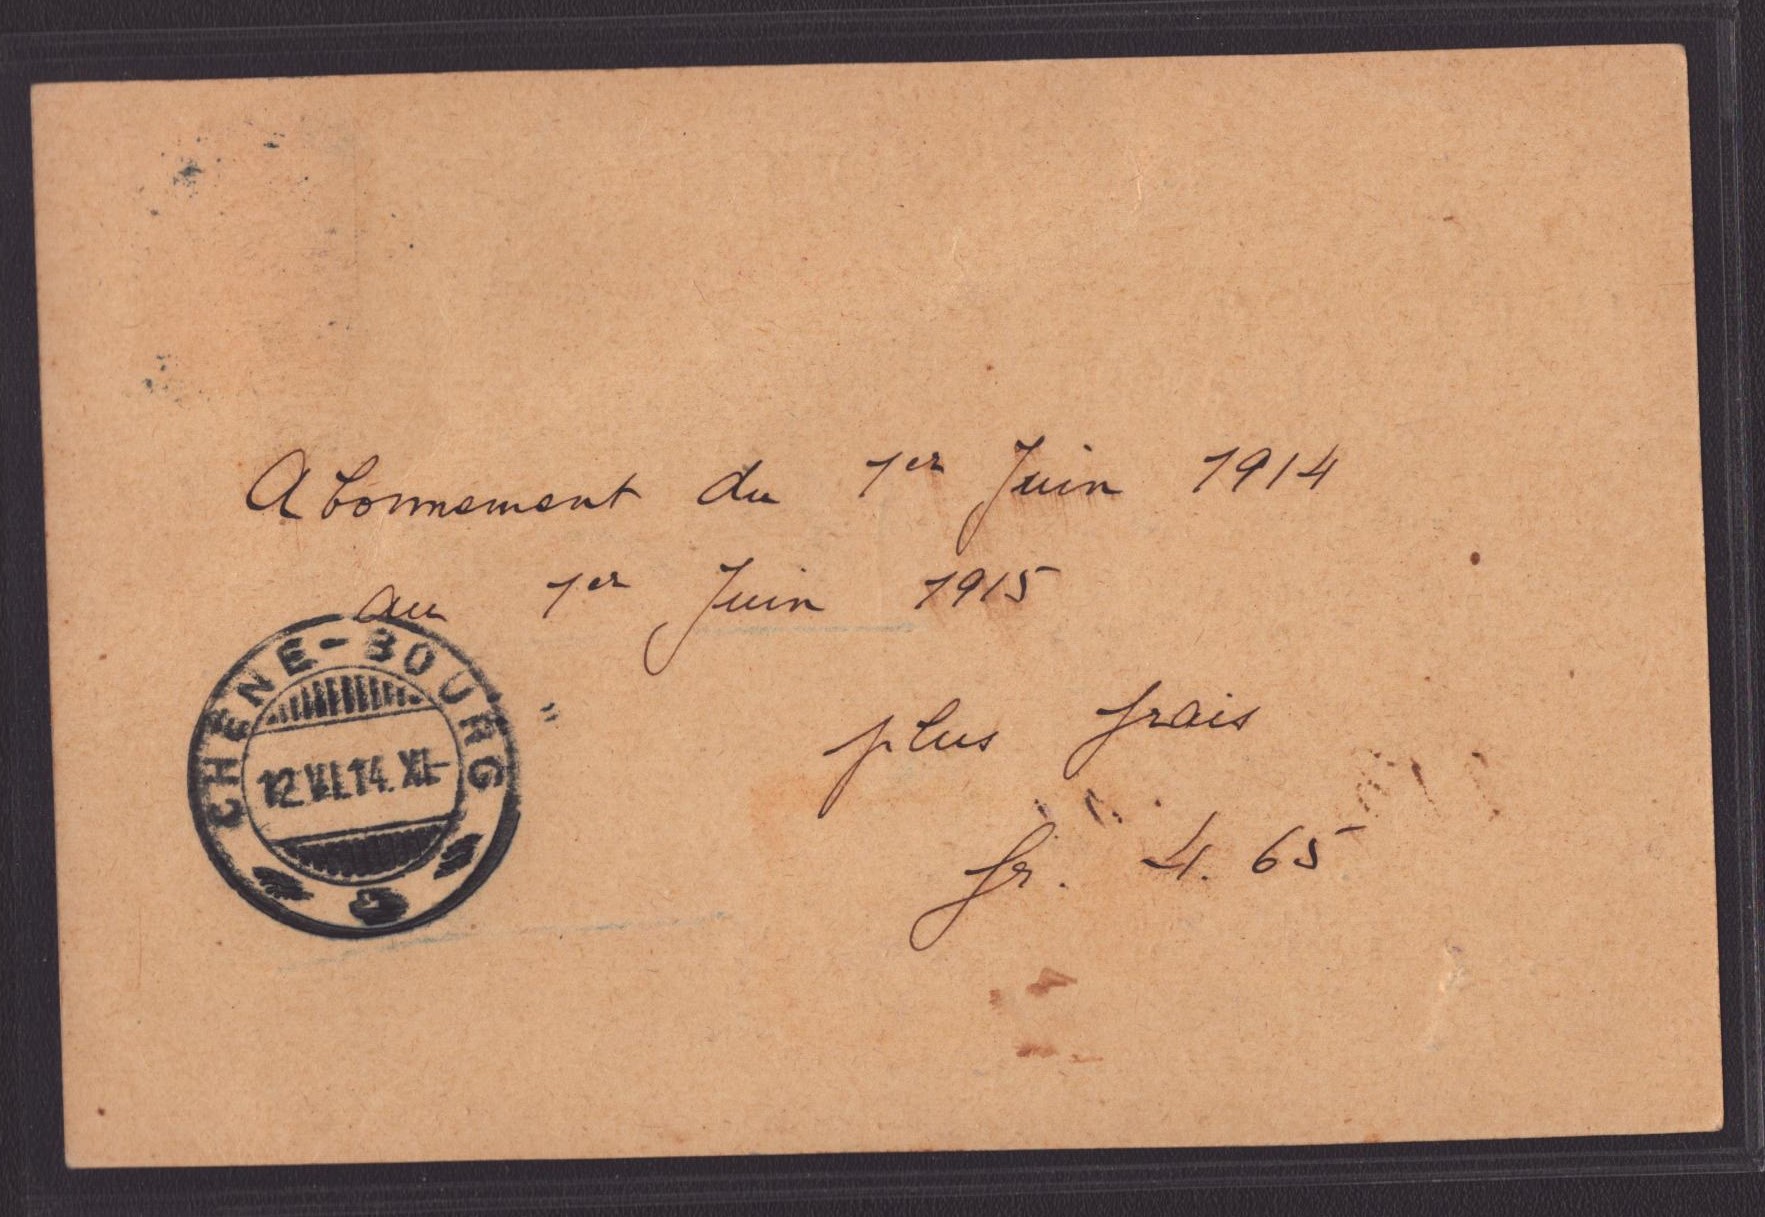 Abonnement du 1er Juin 1914
au 1er Juin 1915
plus frais
fr. 4.65
CHÊNE-BOURG
12.VI.14.XI-